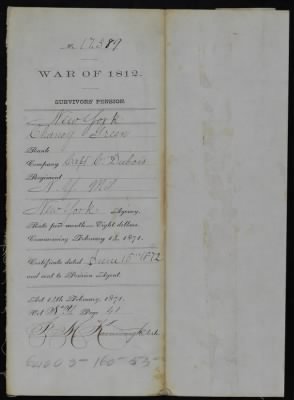 No 17589
WAR OF 1812.
SURVIVORS' PENSION.
New York
Chancy Green
Rank
Company Capt C. Dubois
Regiment
N. Y. Mil
New York Agency.
Rate per month—Eight dollars.
Commencing February 14, 1871.
Certificate dated June 15th 1872
and sent to Pension Agent.
Act 14th February, 1871.
Vol Page 41
Clerk.